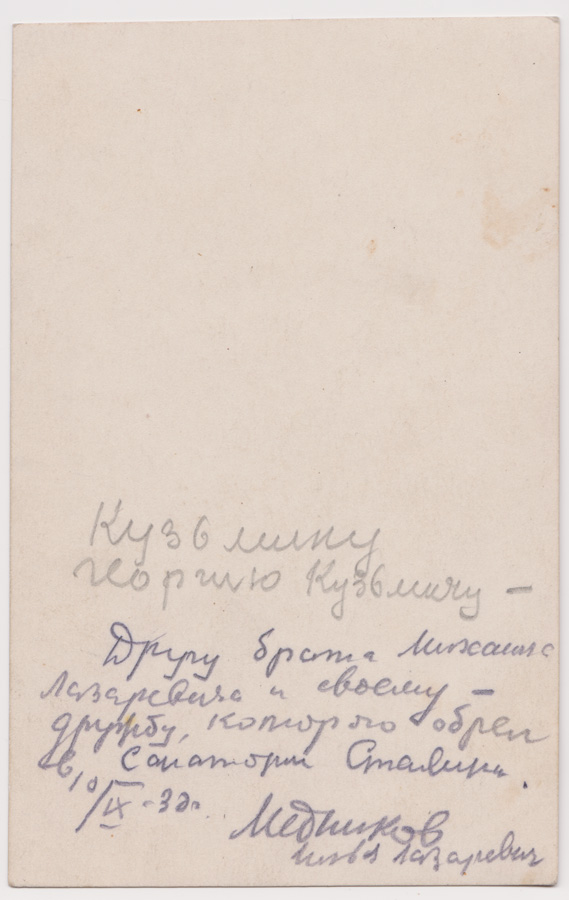 Кузьмину
Георгию Кузьмичу —
Другу брата Михаила
Лазаревича и своему —
дружбу, которого обрел
в Санатории Сталина.
10/IX-
Медников
Илья Лазаревич